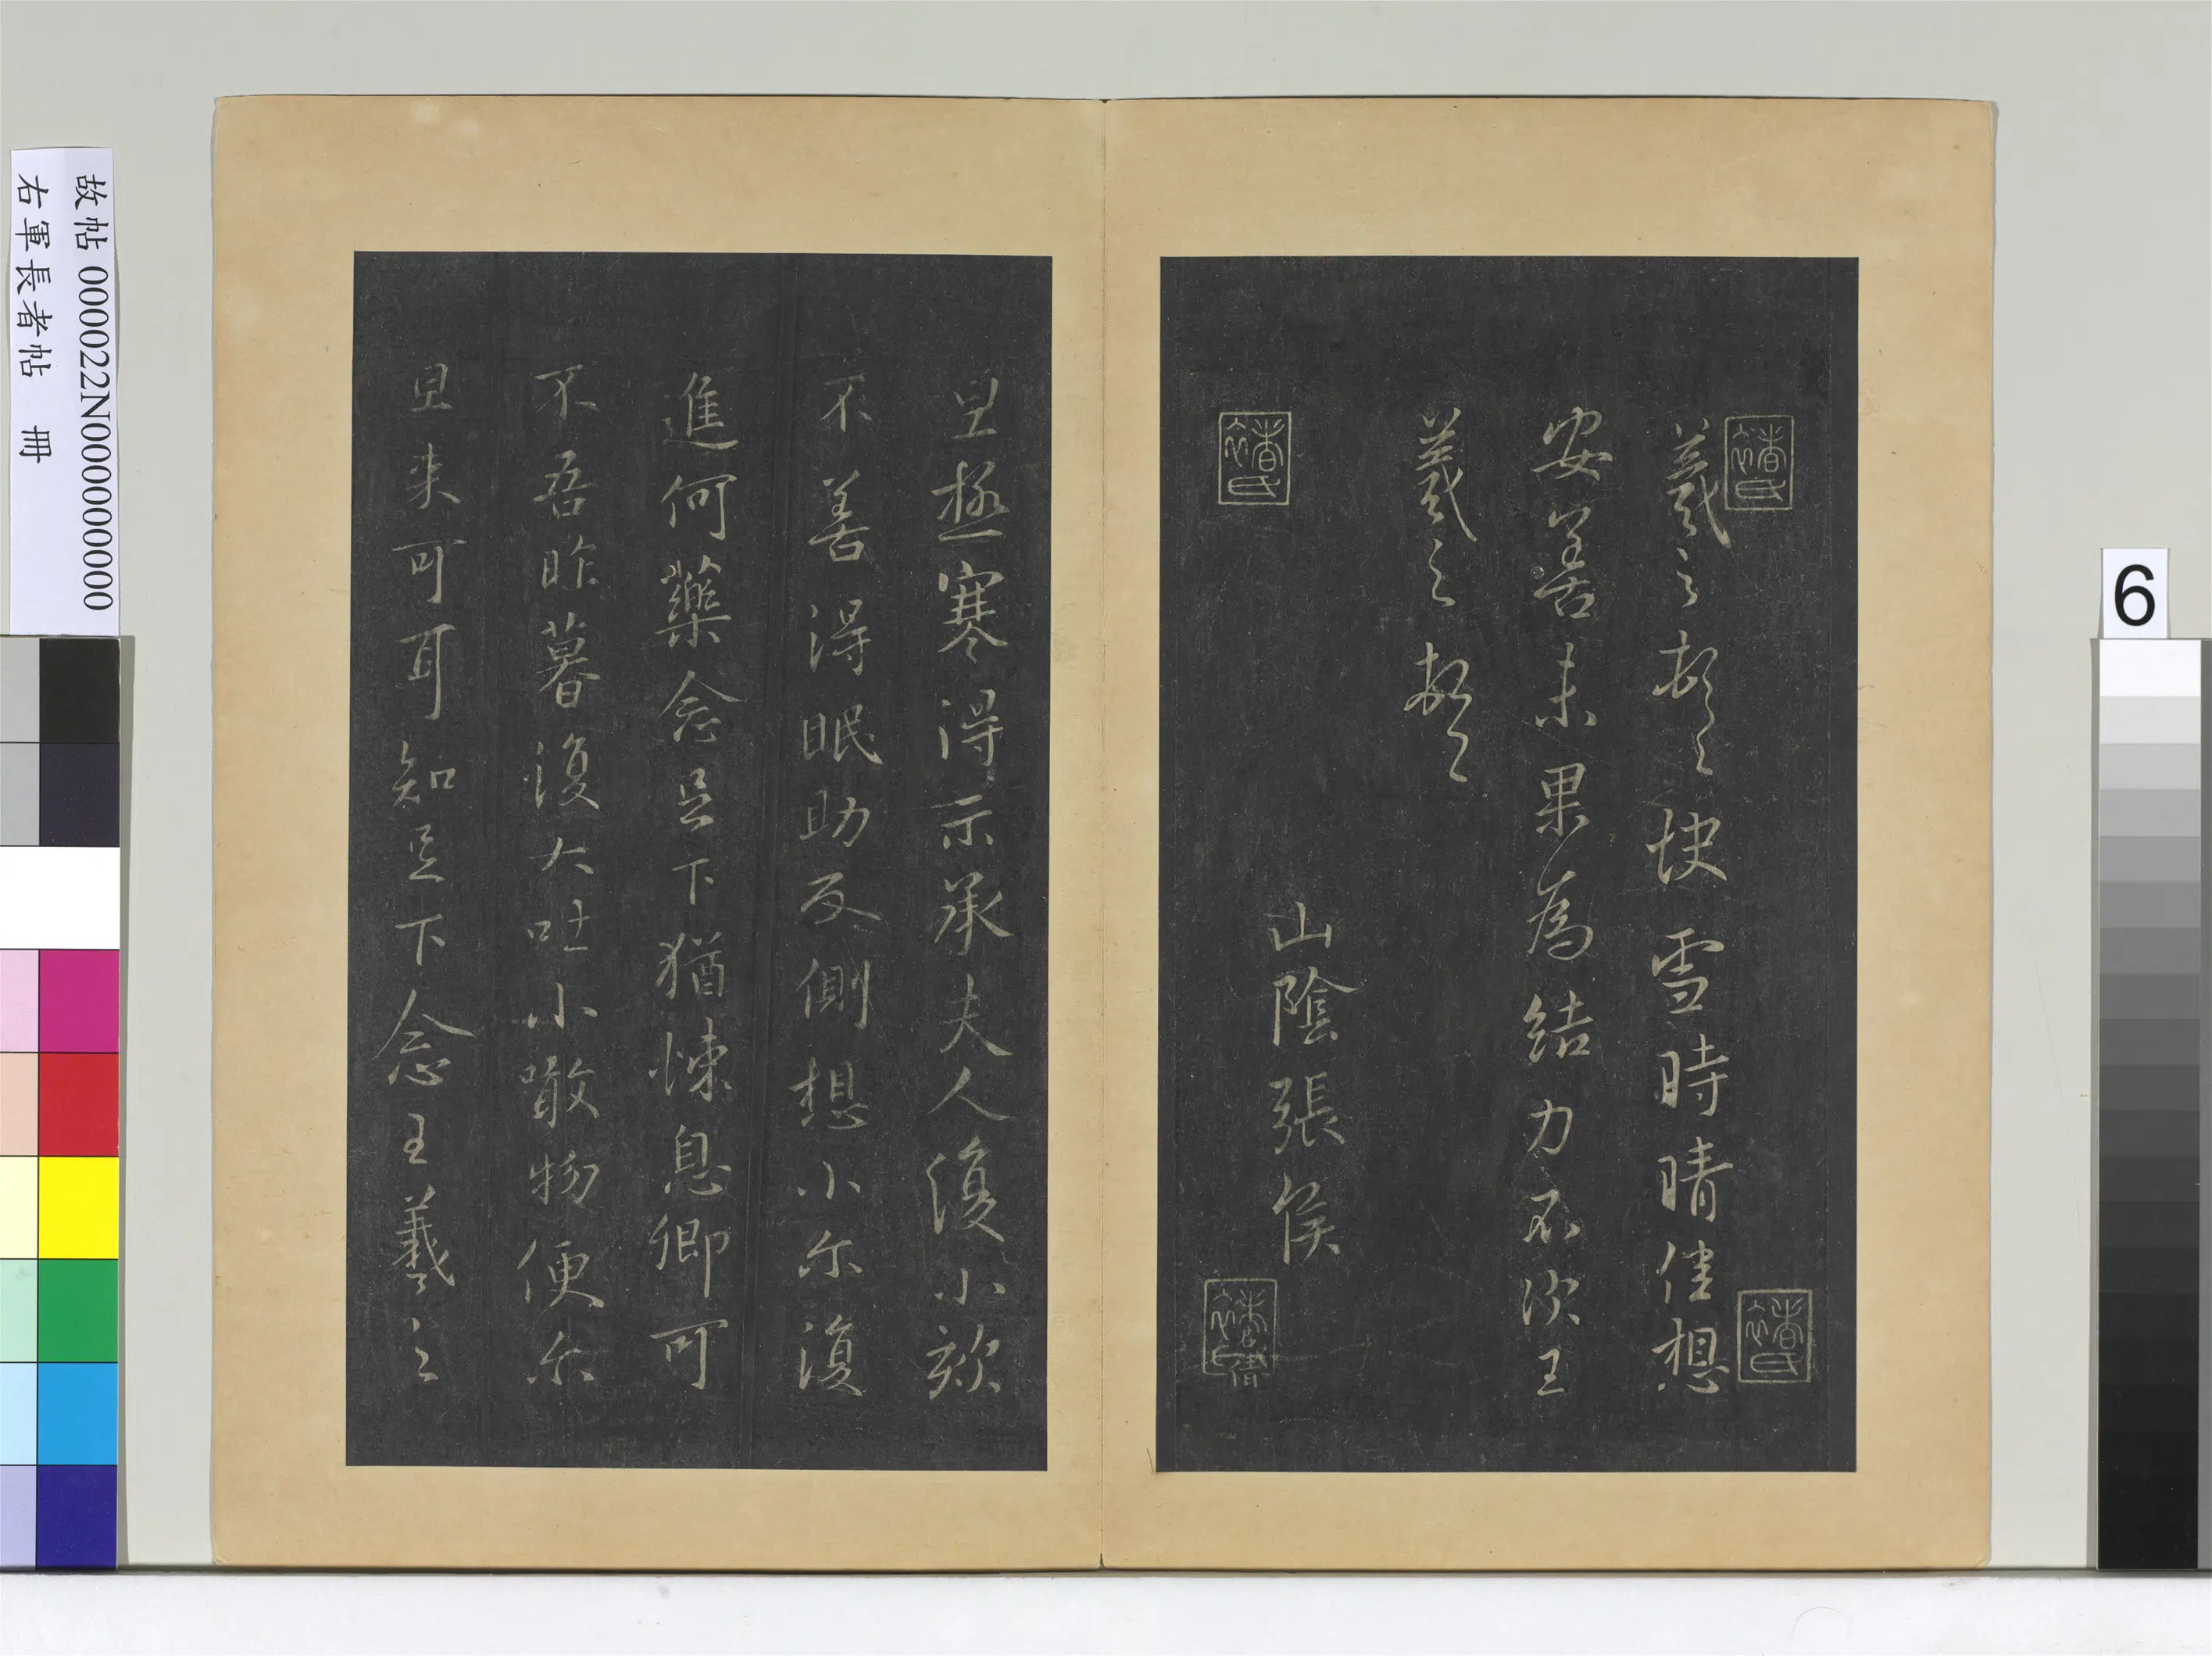 羲之頓首快雪時晴佳想
安善未果為結力不次王
羲之頓首
山陰張侯
旦極寒得示承夫人復小欬
不善得眠助反側想小尓復
進何藥念足下猶悚息卿可
不吾昨暮復大吐小噉物便尓
旦来可耳知足下念王羲之
褚氏
褚氏
褚氏
故帖 000022N000000000
右軍長者帖 冊
6